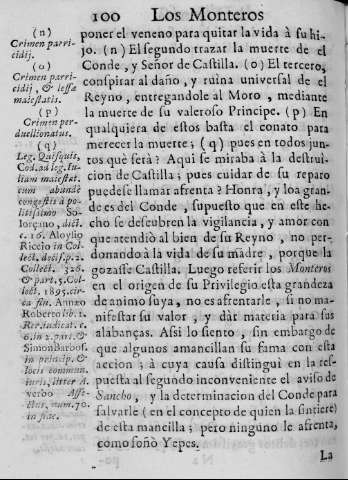 100 Los Monteros
poner el veneno para quitar la vida à su hi-
jo. (n) El segundo trazar la muerte de el
Conde, y Señor de Castilla. (o) El tercero,
conspirar al daño, y ruina universal de el
Reyno, entregandole al Moro, mediante
la muerte de su valeroso Principe. (p) En
qualquiera de estos basta el conato para
merecer la muerte; (q) pues en todos jun-
tos què serà? Aqui se miraba à la destrui-
cion de Castilla; pues cuidar de su reparo
puedese llamar afrenta? Honra, y loa gran-
de es del Conde, supuesto que en este he-
cho se descubren la vigilancia, y amor con
que atendiò al bien de su Reyno, no per-
donando à la vida de su madre, porque la
gozasse Castilla. Luego referir los Monteros
en el origen de su Privilegio esta grandeza
de animo suya, no es afrentarle, si no ma-
nifestar su valor, y dàr materia para sus
alabanças. Assi lo siento, sin embargo de
que algunos amancillan su fama con esta
accion; à cuya causa distinguì en la res-
puesta al segundo inconveniente el aviso de
Sancho, y la determinacion del Conde para
salvarle (en el concepto de quien la sintiere)
de esta mancilla; pero ninguno le afrenta,
como soñò Yepes.
La
(n)
Crimen parri-
cidij.
(o)
Crimen parri-
cidij, & lessæ
maiestatis.
(p)
Crimen per-
duellionatus.
(q)
Leg. Quisquis,
Cod. ad leg. Iu-
liam maiestat.
cum abundè
congestis à po-
litissimo So-
lorçano, dict.
c. 16. Aloysio
Riccio in Col-
lect. decis. p. 2.
Collect. 326.
& part. 5. Col-
lect. 1895. cir-
ca fin. Annæo
Roberto lib. 1.
Rer. iudicat. c.
6. in 2. part.
Simon Barbos.
in princip. &
locis commun.
iuris, litter. A.
verbo Affe-
ctus, num. 70.
in fine.